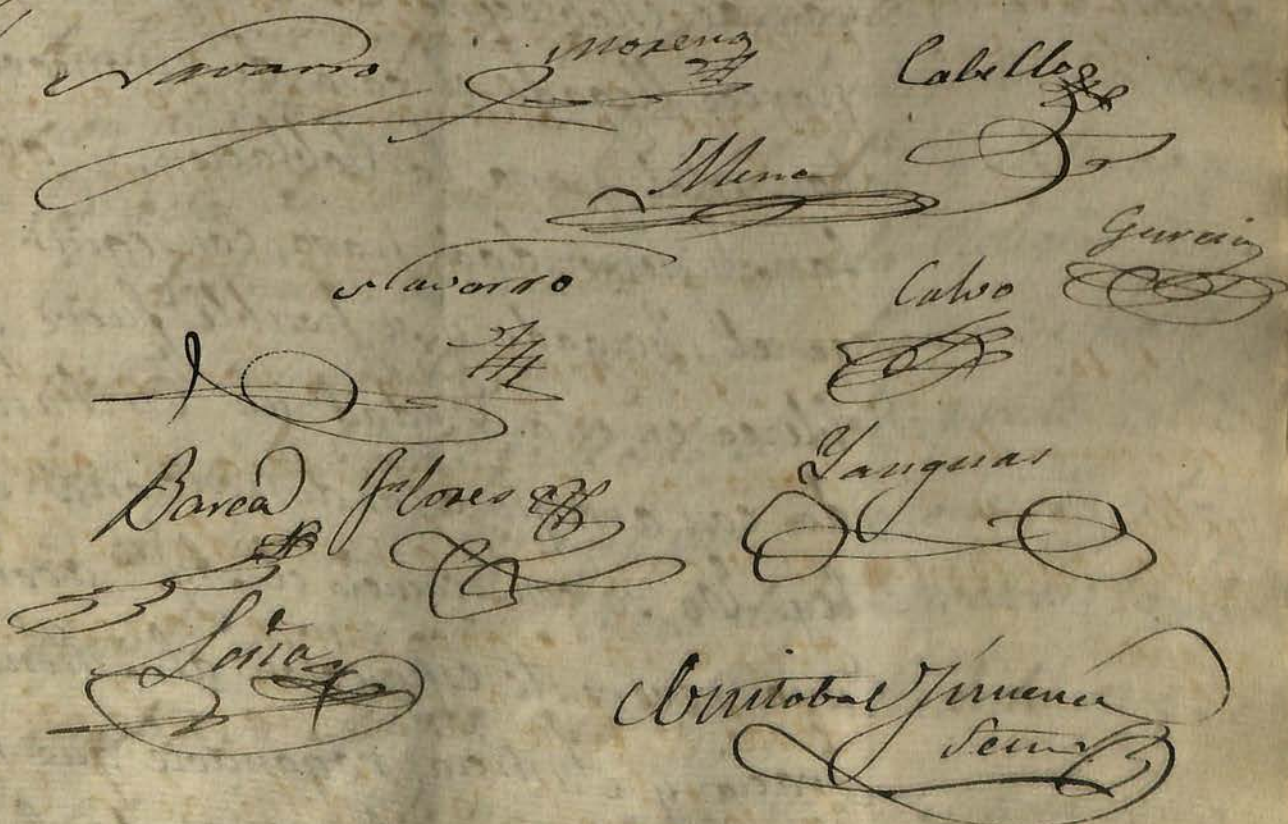 Navarro Moreno Cabello
Mena
Garcia
Navarro Calvo
Barea Flores Yanguas
Soria
Christobal Jimenez